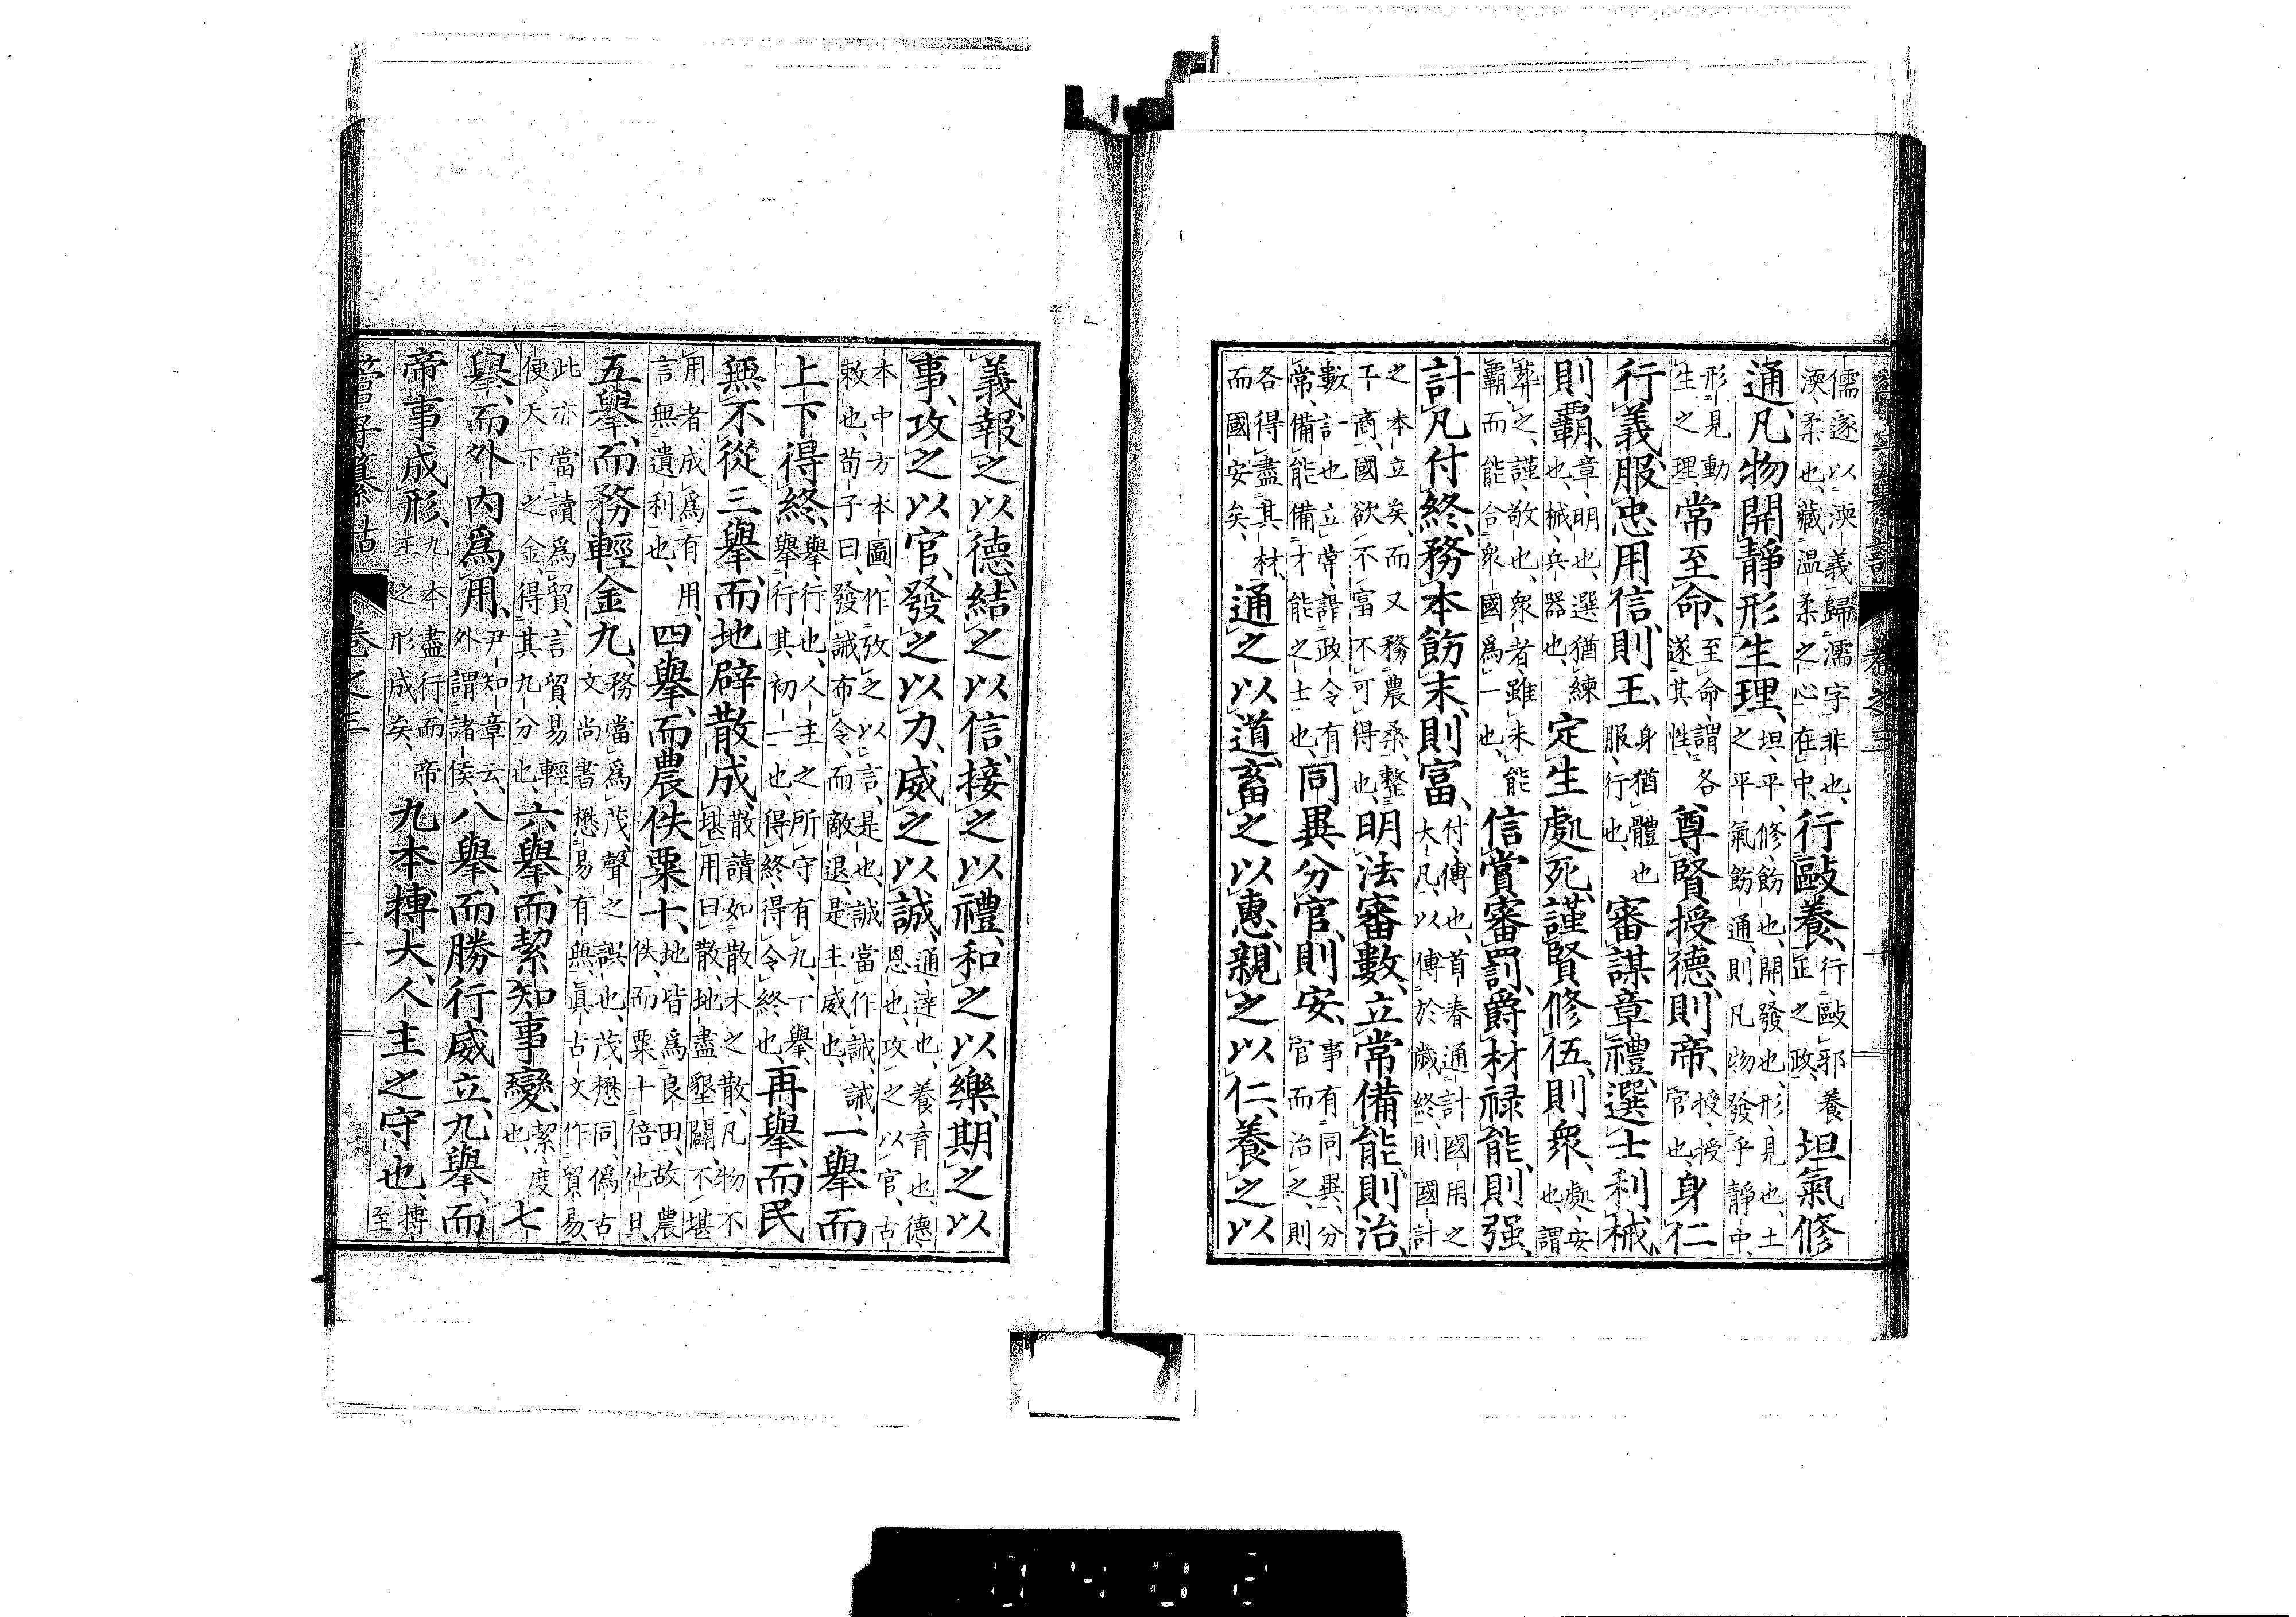 儒遂以渜義歸濡字非也、渜柔也、藏温柔之心在中、行敺養、行敺邪養正之政、坦氣修
通、凡物開靜形生理、坦、平、修、飭也、開、發也、形、見也、土之平氣飭通、則凡物發乎靜中、
形見動生之理、常至命、至命、謂各遂其性、尊賢授德、則帝、授、授官也、身仁
行義服忠用信則王、身猶體也服、行也、審謀章禮選士利械、
則霸、章、明也、選猶練也、械、兵器也、定生處死、謹賢修伍、則衆、處、安也、謂
葬之、謹、敬也、衆者、雖未能霸、而能合衆國爲一也、信賞審罰、爵材禄能、則强、
計凡付終、務本飭末、則富、付、傅也、首春通計國用之大凡、以傅於歲終、則國計
之本立矣、而又務農桑、整平商、國欲不富不可得也、明法審數、立常備能、則治、
數、計也、立常、政令有常、備能、備才能之士也、同異分官、則安、事有同異、分官而治之、則
各得盡其材、而國安矣、通之以道、畜之以惠、親之以仁、養之以
義、報之以德、結之以信、接之以禮、和之以樂、期之以
事、攻之以官、發之以力、威之以誠、通、達也、養育也、德、恩也、攻之以官、古
本中方本圖、作攷之以言、是也、誠當作誡、誡、敕也、荀子曰、發誡布令、而敵退、是主威也、一舉而
上下得終、舉、行也、人主之所守有九、一舉、舉行其初一也、得終、得令終也、再舉、而民
無不從、三舉、而地辟散成、散讀如散木之散、凡物不堪用曰散、地盡墾闢、不堪
用者、成爲有用、言無遺利也、四舉、而農佚粟十、地皆爲良田、故農佚、而粟十倍他日、
五舉、而務輕金九、務當爲茂、聲之誤也、茂懋同、僞古文尚書懋易有無、眞古文作貿易、
此亦當讀爲貿、言貿易輕便、天下之金、得其九分也、六舉、而絜知事變、絜、度也、七
舉、而外內爲用、尹知章云、外謂諸侯、八舉、而勝行威立、九舉、而
帝事成形、九本盡行、而帝王之形成矣、九本摶大、人主之守也、摶、至
管子纂詁　卷之三　二